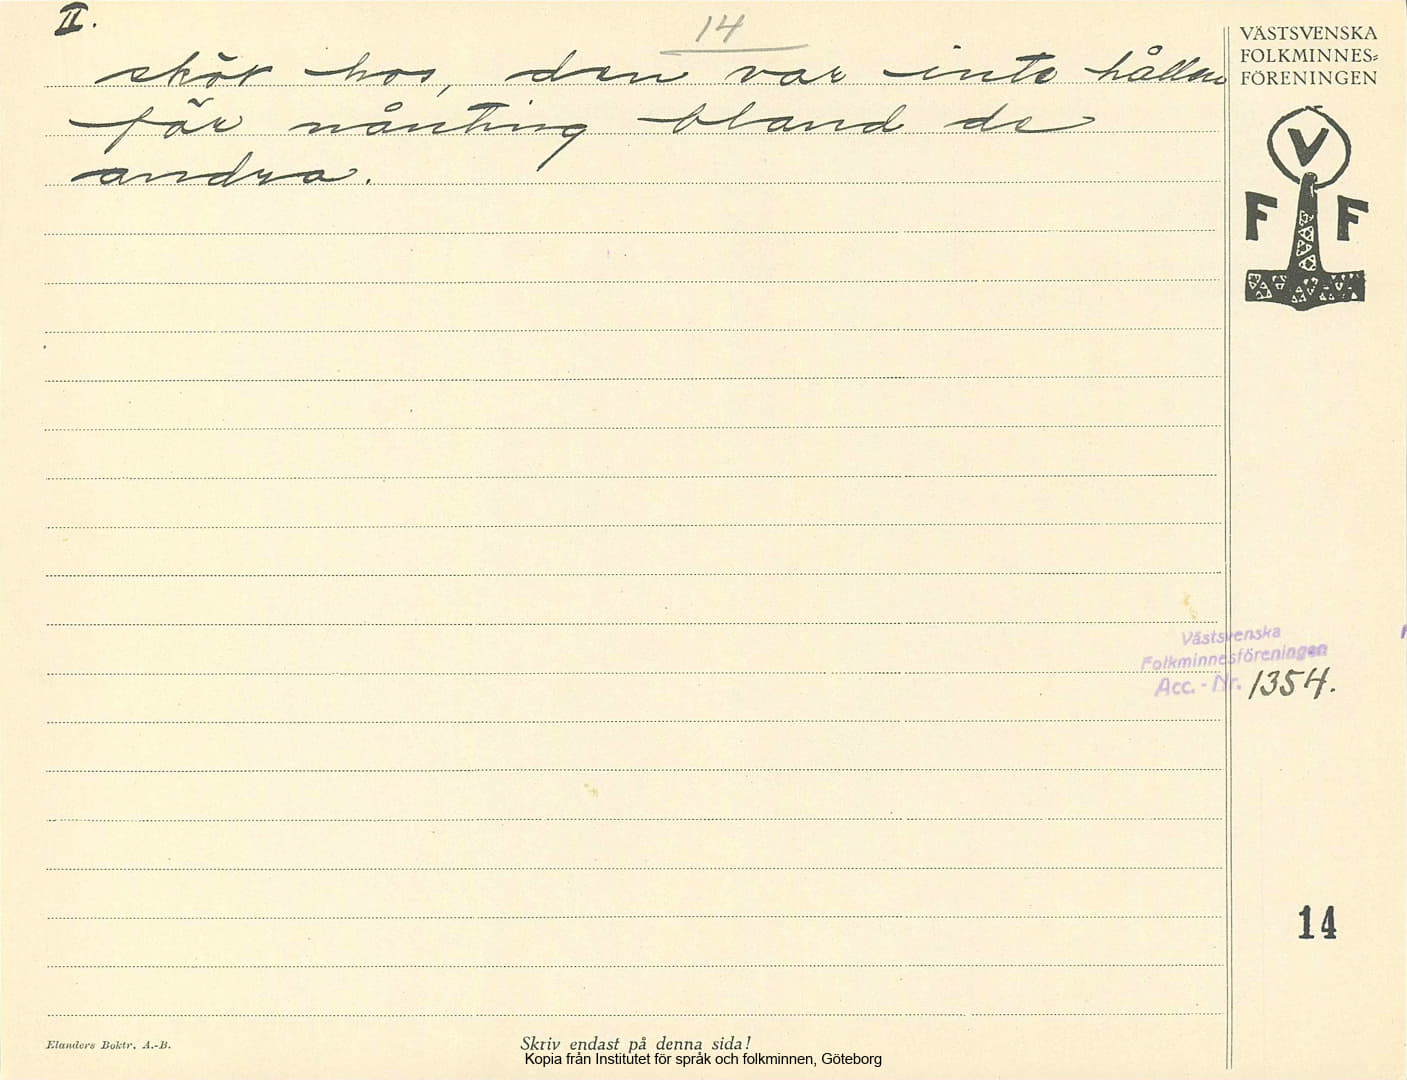 II.
14
sköt hos, den var inte hållen
för nånting bland de
andra.
VÄSTSVENSKA
FOLKMINNES=
FÖRENINGEN
V
F F
Västsvenska
Folkminnesföreningen
Acc. - Nr. 1354.
14
Elanders Boktr. A.-B.
Skriv endast på denna sida!
Kopia från Institutet för språk och folkminnen, Göteborg